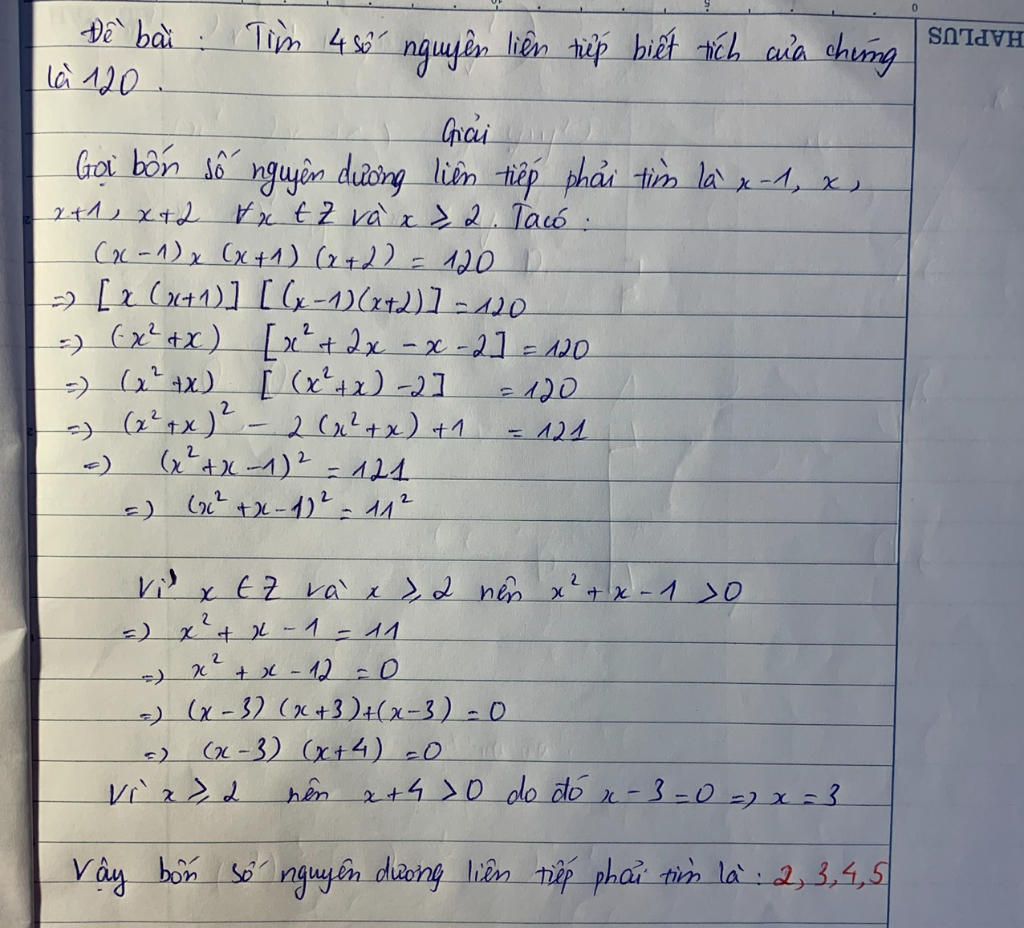 Đề bài : Tìm 4 số nguyên liên tiếp biết tích của chúng
là 120.
Giải
Gọi bốn số nguyên dương liên tiếp phải tìm là x-1, x,
x+1, x+2 ∀x ∈ Z và x ≥ 2. Ta có :
(x-1)x (x+1) (x+2) = 120
=> [x (x+1)] [(x-1)(x+2)] = 120
=> (x²+x) [x² + 2x - x - 2] = 120
=> (x²+x) [(x²+x) - 2] = 120
=> (x²+x)² - 2(x²+x) + 1 = 121
=> (x²+x-1)² = 121
=> (x²+x-1)² = 11²
Vì x ∈ Z và x ≥ 2 nên x² + x - 1 > 0
=> x² + x - 1 = 11
=> x² + x - 12 = 0
=> (x-3) (x+3)+(x-3) = 0
=> (x-3) (x+4) = 0
Vì x ≥ 2 nên x+4 > 0 do đó x-3 = 0 => x = 3
Vậy bốn số nguyên dương liên tiếp phải tìm là : 2, 3, 4, 5
HAPLUS